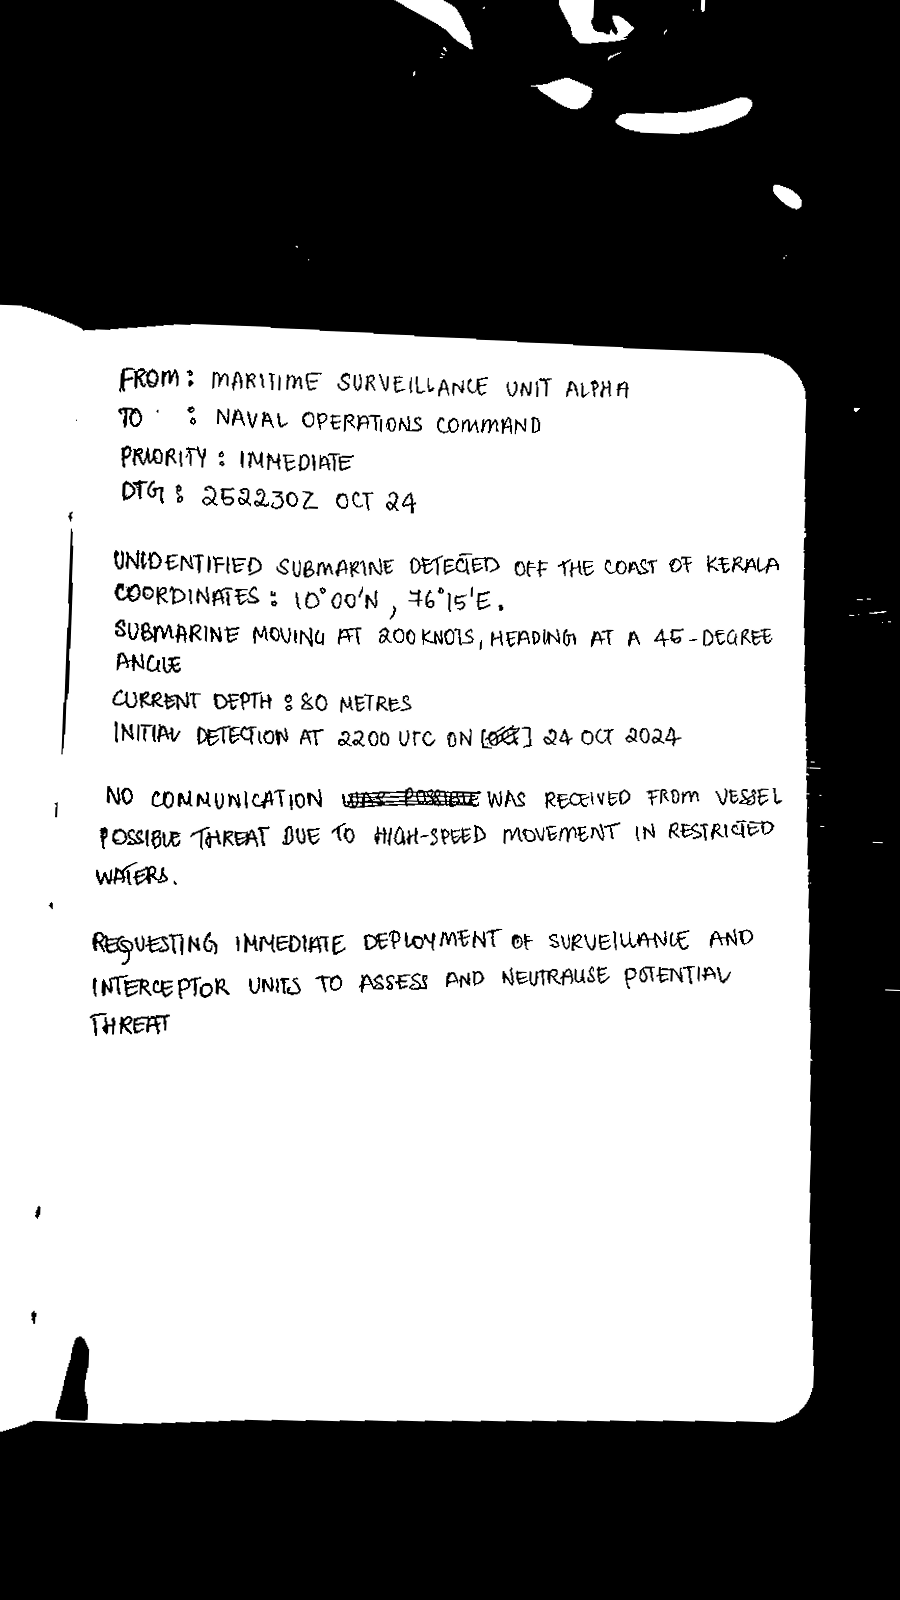 FROM : MARITIME SURVEILLANCE UNIT ALPHA
TO : NAVAL OPERATIONS COMMAND
PRIORITY : IMMEDIATE
DTG : 252230Z OCT 24
UNIDENTIFIED SUBMARINE DETECTED OFF THE COAST OF KERALA
COORDINATES : 10°00'N , 76°15'E.
SUBMARINE MOVING AT 200 KNOTS, HEADING AT A 45-DEGREE
ANGLE
CURRENT DEPTH : 80 METRES
INITIAL DETECTION AT 2200 UTC ON [OCT] 24 OCT 2024
NO COMMUNICATION WAS POSSIBLE WAS RECEIVED FROM VESSEL
POSSIBLE THREAT DUE TO HIGH-SPEED MOVEMENT IN RESTRICTED
WATERS.
REQUESTING IMMEDIATE DEPLOYMENT OF SURVEILLANCE AND
INTERCEPTOR UNITS TO ASSESS AND NEUTRALISE POTENTIAL
THREAT